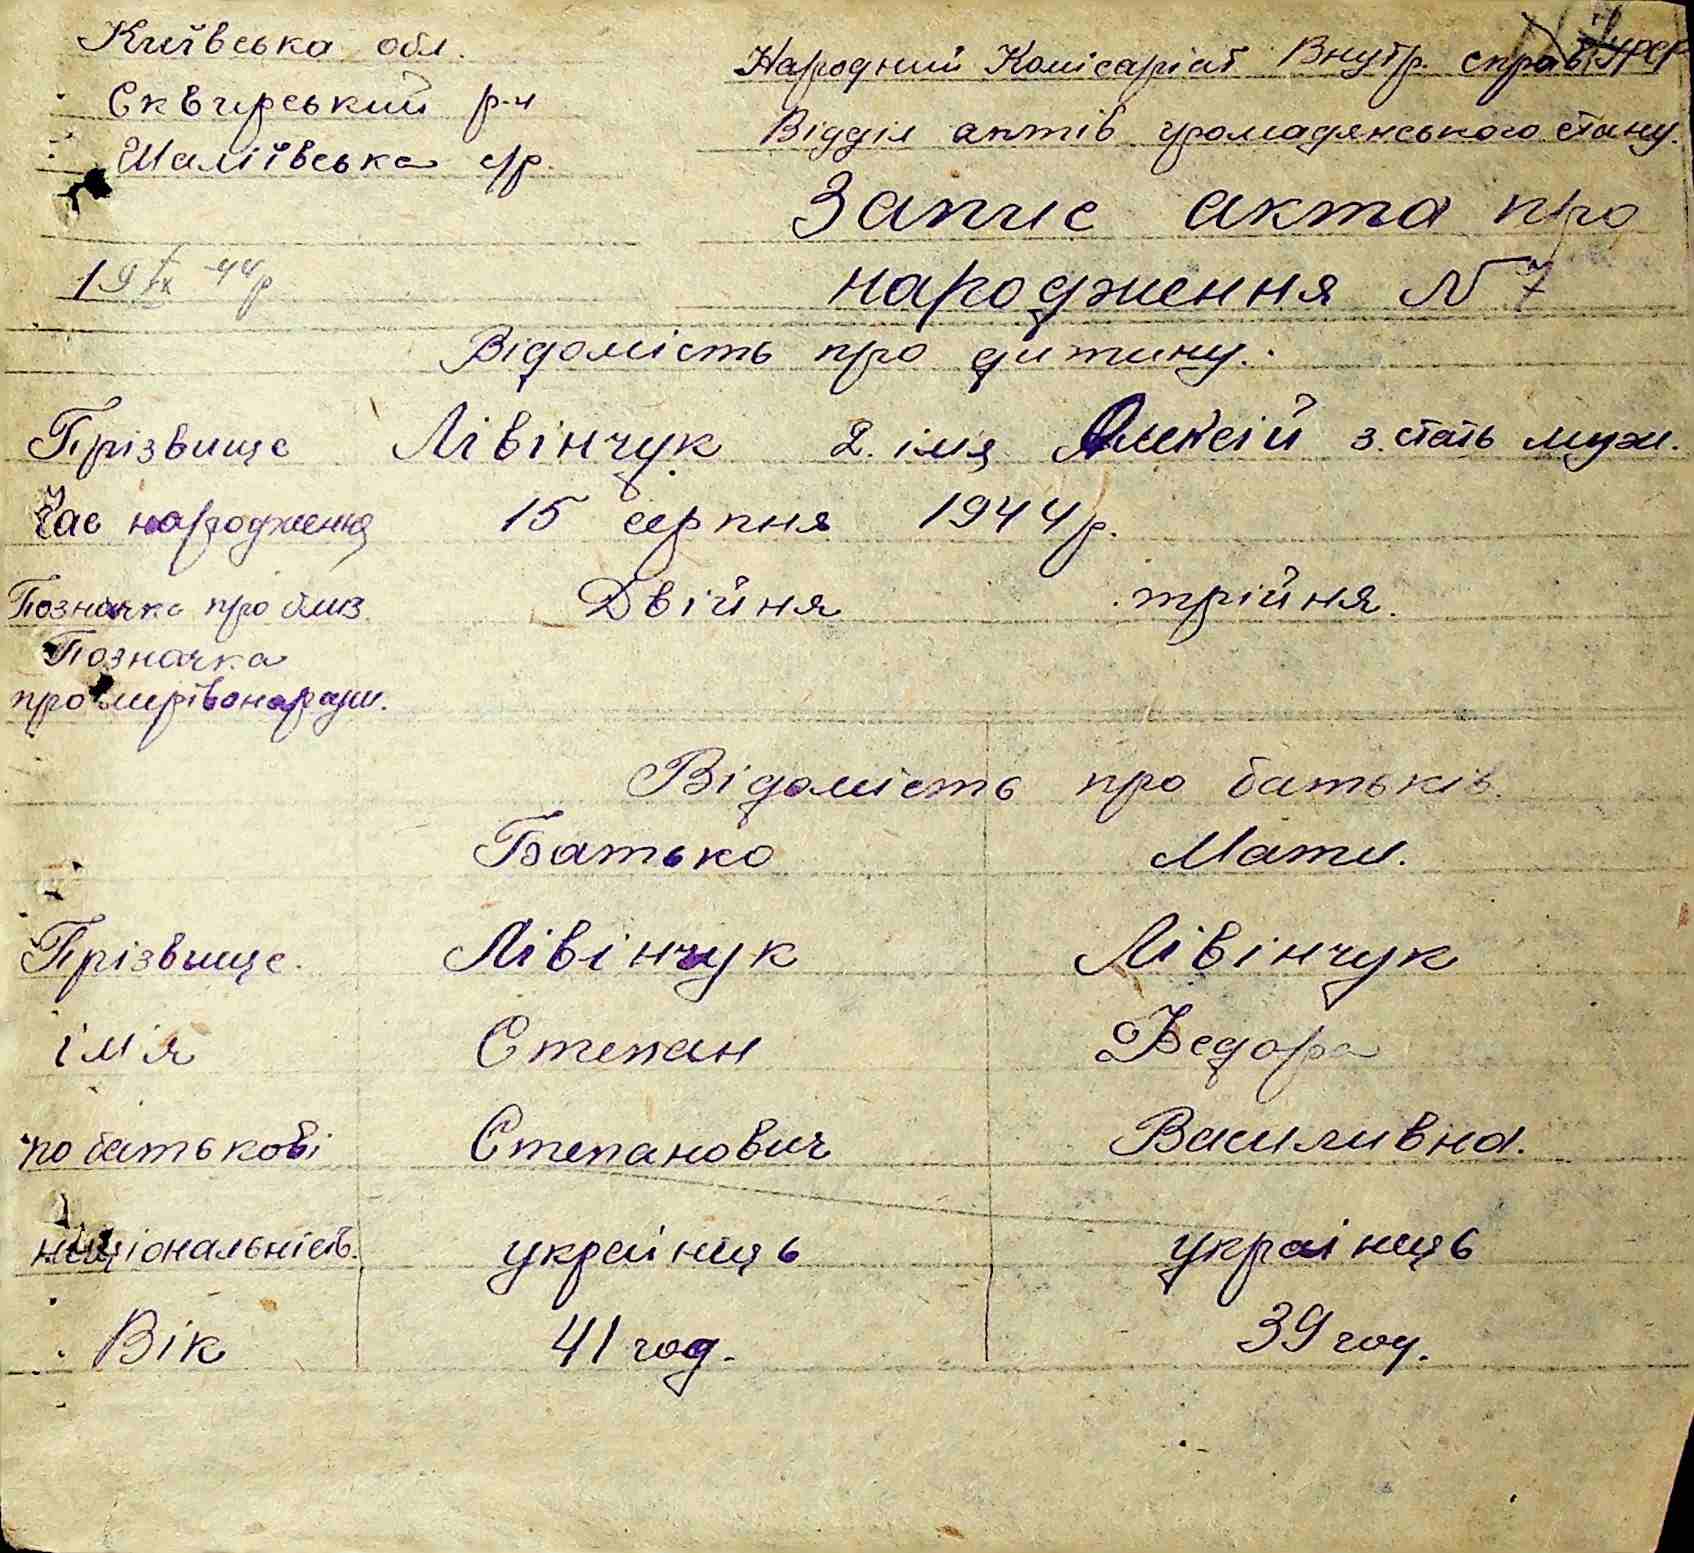 Київська обл.
Сквирський р-н
Шаліївська с/р.
Народний Комісаріат Внутр. справ УРСР
Відділ актів громадянського стану.
Запис акта про
народження N 7
19 IX 44р
Відомість про дитину.
Прізвище Лівінчук 2. імя Олексій 3. стать муж.
Час народження 15 серпня 1944р.
Позначка про близ. Двійня трійня.
Позначка
про мертвонародж.
Відомість про батьків.
Батько Мати.
Прізвище. Лівінчук Лівінчук
ім'я Степан Федора
по батькові Степанович Василивна.
національність. украінць украінць
Вік 41 год. 39 год.